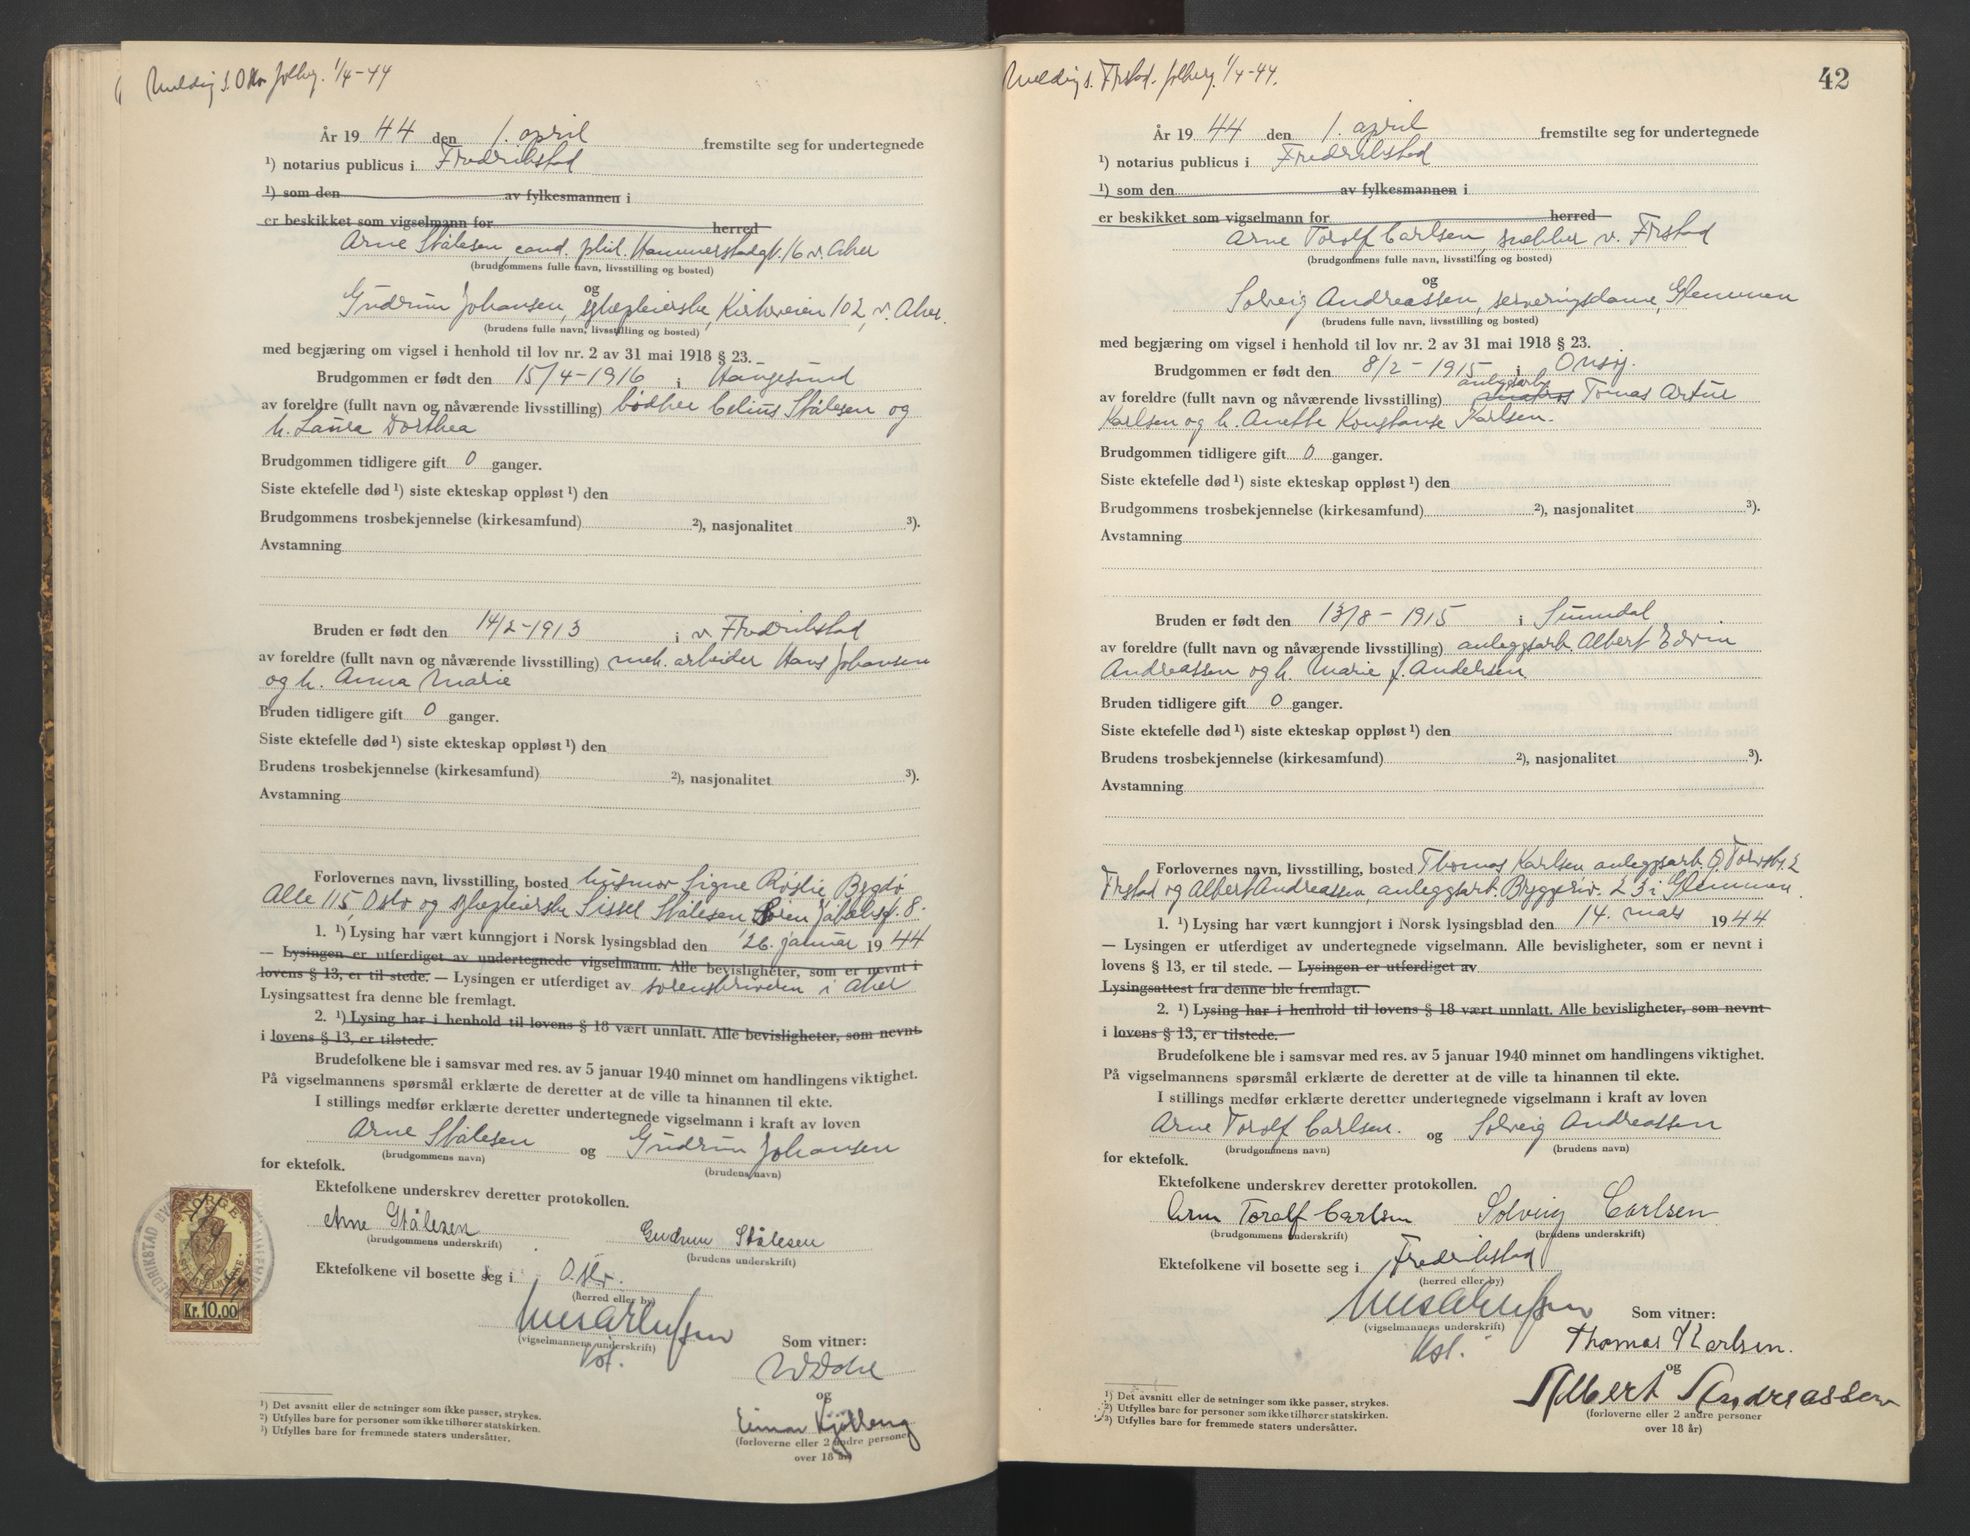 Melding s. Oslo folkereg. 1/4-44
År 1944 den 1. april fremstilte seg for undertegnede
¹) notarius publicus i Fredrikstad
¹) som den av fylkesmannen i
er beskikket som vigselmann for herred
Arne Stålesen, cand. phil. Hammerstadgt. 16 v. Aker
(brudgommens fulle navn, livsstilling og bosted)
og
Gudrun Johansen, sykepleierske, Kirkeveien 102, v. Aker.
(brudens fulle navn, livsstilling og bosted)
med begjæring om vigsel i henhold til lov nr. 2 av 31 mai 1918 § 23.
Brudgommen er født den 15/4-1916 i Haugesund
av foreldre (fullt navn og nåværende livsstilling) bødker Celius Stålesen og
h. Laura Dorthea
Brudgommen tidligere gift 0 ganger.
Siste ektefelle død ¹) siste ekteskap oppløst ¹) den
Brudgommens trosbekjennelse (kirkesamfund) ²), nasjonalitet ³).
Avstamning
Bruden er født den 14/2-1913 i v. Fredrikstad
av foreldre (fullt navn og nåværende livsstilling) mek. arbeider Hans Johansen
og h. Anna Marie
Bruden tidligere gift 0 ganger.
Siste ektefelle død ¹) siste ekteskap oppløst ¹) den
Brudens trosbekjennelse (kirkesamfund) ²), nasjonalitet ³).
Avstamning
Forlovernes navn, livsstilling, bosted husmor Signe Røslie Bygdø
Alle 115, Oslo og sykepleierske Sissel Stålesen 8.
1. ¹) Lysing har vært kunngjort i Norsk lysingsblad den 26. januar 1944
— Lysingen er utferdiget av undertegnede vigselmann. Alle bevisligheter, som er nevnt i
lovens § 13, er til stede. — Lysingen er utferdiget av sorenskriveren i Aker
Lysingsattest fra denne ble fremlagt.
2. ¹) Lysing har i henhold til lovens § 18 vært unnlatt. Alle bevisligheter, som nevnt
i lovens § 13, er tilstede.
Brudefolkene ble i samsvar med res. av 5 januar 1940 minnet om handlingens viktighet.
På vigselmannens spørsmål erklærte de deretter at de ville ta hinannen til ekte.
I stillings medfør erklærte deretter undertegnede vigselmann i kraft av loven
Arne Stålesen og Gudrun Johansen
(brudgommens navn) (brudens navn)
for ektefolk.
Ektefolkene underskrev deretter protokollen.
Arne Stålesen Gudrun Stålesen
(brudgommens underskrift) (brudens underskrift)
Ektefolkene vil bosette seg i Oslo.
(herred eller by)
(vigselmannens underskrift)
Som vitner:
og
(forloverne eller 2 andre personer
over 18 år)
NORGE
STEMPELMERKE
Kr. 10.00
¹) Det avsnitt eller de setninger som ikke passer, strykes.
²) Utfylles bare for personer som ikke tilhører statskirken.
³) Utfylles bare for fremmede staters undersåtter.
42
Melding s. Frstad. folkereg. 1/4-44.
År 1944 den 1. april fremstilte seg for undertegnede
¹) notarius publicus i Fredrikstad
¹) som den av fylkesmannen i
er beskikket som vigselmann for herred
Arne Torolf Carlsen, snekker v. Frstad
(brudgommens fulle navn, livsstilling og bosted)
og
Solveig Andreassen, serveringsdame, Glemmen
(brudens fulle navn, livsstilling og bosted)
med begjæring om vigsel i henhold til lov nr. 2 av 31 mai 1918 § 23.
Brudgommen er født den 8/2-1915 i Onsøy.
anleggsarb.
av foreldre (fullt navn og nåværende livsstilling) Tomas Artur
Karlsen og h. Anette Konstanse Karlsen.
Brudgommen tidligere gift 0 ganger.
Siste ektefelle død ¹) siste ekteskap oppløst ¹) den
Brudgommens trosbekjennelse (kirkesamfund) ²), nasjonalitet ³).
Avstamning
Bruden er født den 13/8-1915 i Sunndal
av foreldre (fullt navn og nåværende livsstilling) anleggsarb. Albert Edvin
Andreassen og h. Marie f. Andersen.
Bruden tidligere gift 0 ganger.
Siste ektefelle død ¹) siste ekteskap oppløst ¹) den
Brudens trosbekjennelse (kirkesamfund) ²), nasjonalitet ³).
Avstamning
Forlovernes navn, livsstilling, bosted Thomas Karlsen anleggsarb.
Frstad og Albert Andreassen, anleggsarb. 23 i Glemmen.
1. ¹) Lysing har vært kunngjort i Norsk lysingsblad den 14. mars 1944
— Lysingen er utferdiget av undertegnede vigselmann. Alle bevisligheter, som er nevnt i
lovens § 13, er til stede. — Lysingen er utferdiget av
Lysingsattest fra denne ble fremlagt.
2. ¹) Lysing har i henhold til lovens § 18 vært unnlatt. Alle bevisligheter, som nevnt
i lovens § 13, er tilstede.
Brudefolkene ble i samsvar med res. av 5 januar 1940 minnet om handlingens viktighet.
På vigselmannens spørsmål erklærte de deretter at de ville ta hinannen til ekte.
I stillings medfør erklærte deretter undertegnede vigselmann i kraft av loven
Arne Torolf Carlsen. og Solveig Andreassen
(brudgommens navn) (brudens navn)
for ektefolk.
Ektefolkene underskrev deretter protokollen.
Arne Toralf Carlsen Solveig Carlsen
(brudgommens underskrift) (brudens underskrift)
Ektefolkene vil bosette seg i Fredrikstad
(herred eller by)
(vigselmannens underskrift)
Som vitner:
Thomas Karlsen.
og
Albert Andreassen
(forloverne eller 2 andre personer
over 18 år)
¹) Det avsnitt eller de setninger som ikke passer, strykes.
²) Utfylles bare for personer som ikke tilhører statskirken.
³) Utfylles bare for fremmede staters undersåtter.